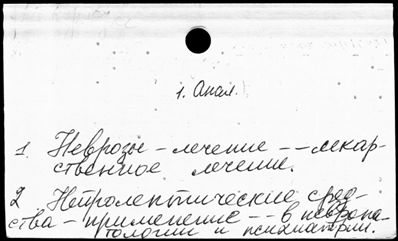 1. Анал.
1. Неврозы - лечение -- лекар-
ственное лечение.
2 Нейролептические сред-
ства - применение -- в невропа-
тологии и психиатрии.